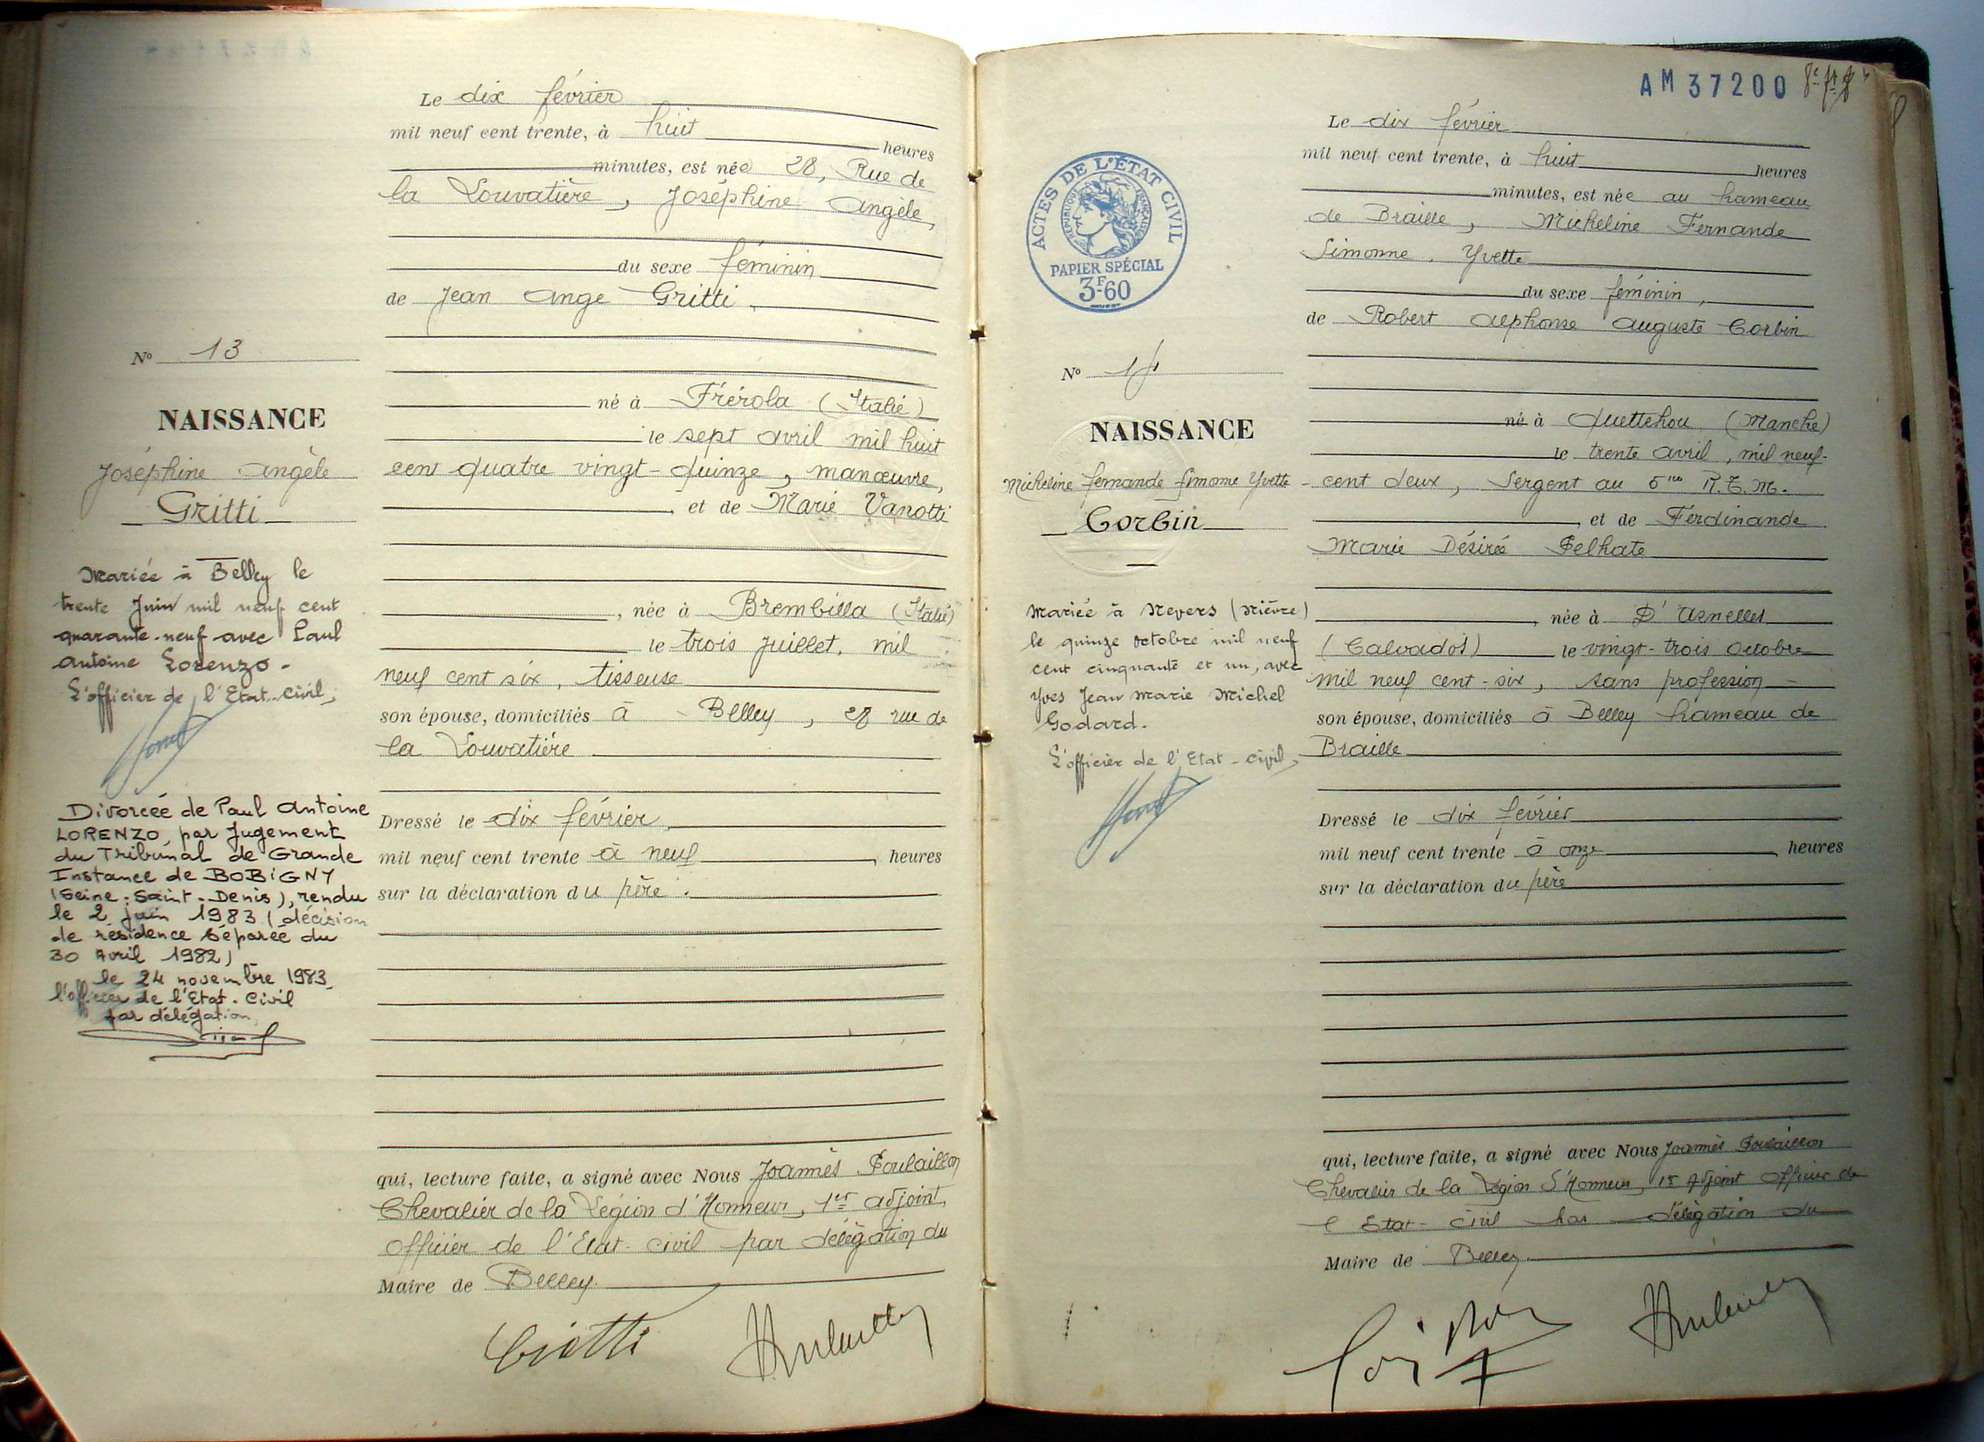 Le dix février
mil neuf cent trente, à huit heures
minutes, est née 28, Rue de
la Louvatière, Joséphine Angèle,
du sexe féminin
de Jean Ange Gritti
N° 13
né à Frérola (Italie)
NAISSANCE
le sept avril mil huit
Joséphine Angèle
cent quatre vingt-quinze, manœuvre,
Gritti
et de Marie Vanotti
Mariée à Belley le
trente Juin mil neuf cent
quarante-neuf avec Paul
Antoine Lorenzo.
L'officier de l'Etat-civil,
, née à Brembilla (Italie)
le trois juillet, mil
neuf cent six, tisseuse
son épouse, domiciliés à Belley, 28 rue de
la Louvatière
Divorcée de Paul Antoine
LORENZO, par Jugement
du Tribunal de Grande
Instance de BOBIGNY
(Seine-Saint-Denis), rendu
le 2 juin 1983 (décision
de résidence séparée du
30 Avril 1982)
le 24 novembre 1983
l'officier de l'Etat-Civil
par délégation,
Dressé le dix février,
mil neuf cent trente à neuf, heures
sur la déclaration du père.
qui, lecture faite, a signé avec Nous Joannès Poulaillon
Chevalier de la Légion d'Honneur, 1er adjoint,
officier de l'Etat-civil par délégation du
Maire de Belley.
Gritti
AM 37200
Le dix février
mil neuf cent trente, à huit heures
minutes, est née au hameau
de Braille, Micheline Fernande
Simonne, Yvette
du sexe féminin,
de Robert Alphonse Auguste Corbin
ACTES DE L'ÉTAT CIVIL
RÉPUBLIQUE FRANÇAISE
PAPIER SPÉCIAL
3F.60
N° 14
né à Quettehou (Manche)
NAISSANCE
le trente avril, mil neuf-
Micheline Fernande Simone Yvette
cent deux, Sergent au 5me R.T.M.
Corbin
, et de Ferdinande
Marie Désirée Pelhate
Mariée à Nevers (Nièvre)
le quinze octobre mil neuf
cent cinquante et un, avec
Yves Jean Marie Michel
Godard.
L'officier de l'Etat-civil,
, née à D'Asnelles
(Calvados) le vingt-trois octobre
mil neuf cent-six, sans profession
son épouse, domiciliés à Belley hameau de
Braille
Dressé le dix février
mil neuf cent trente à onze, heures
sur la déclaration du père
qui, lecture faite, a signé avec Nous Joannès Poulaillon
Chevalier de la Légion d'Honneur, 1er Adjoint officier de
l'Etat-civil par délégation du
Maire de Belley.